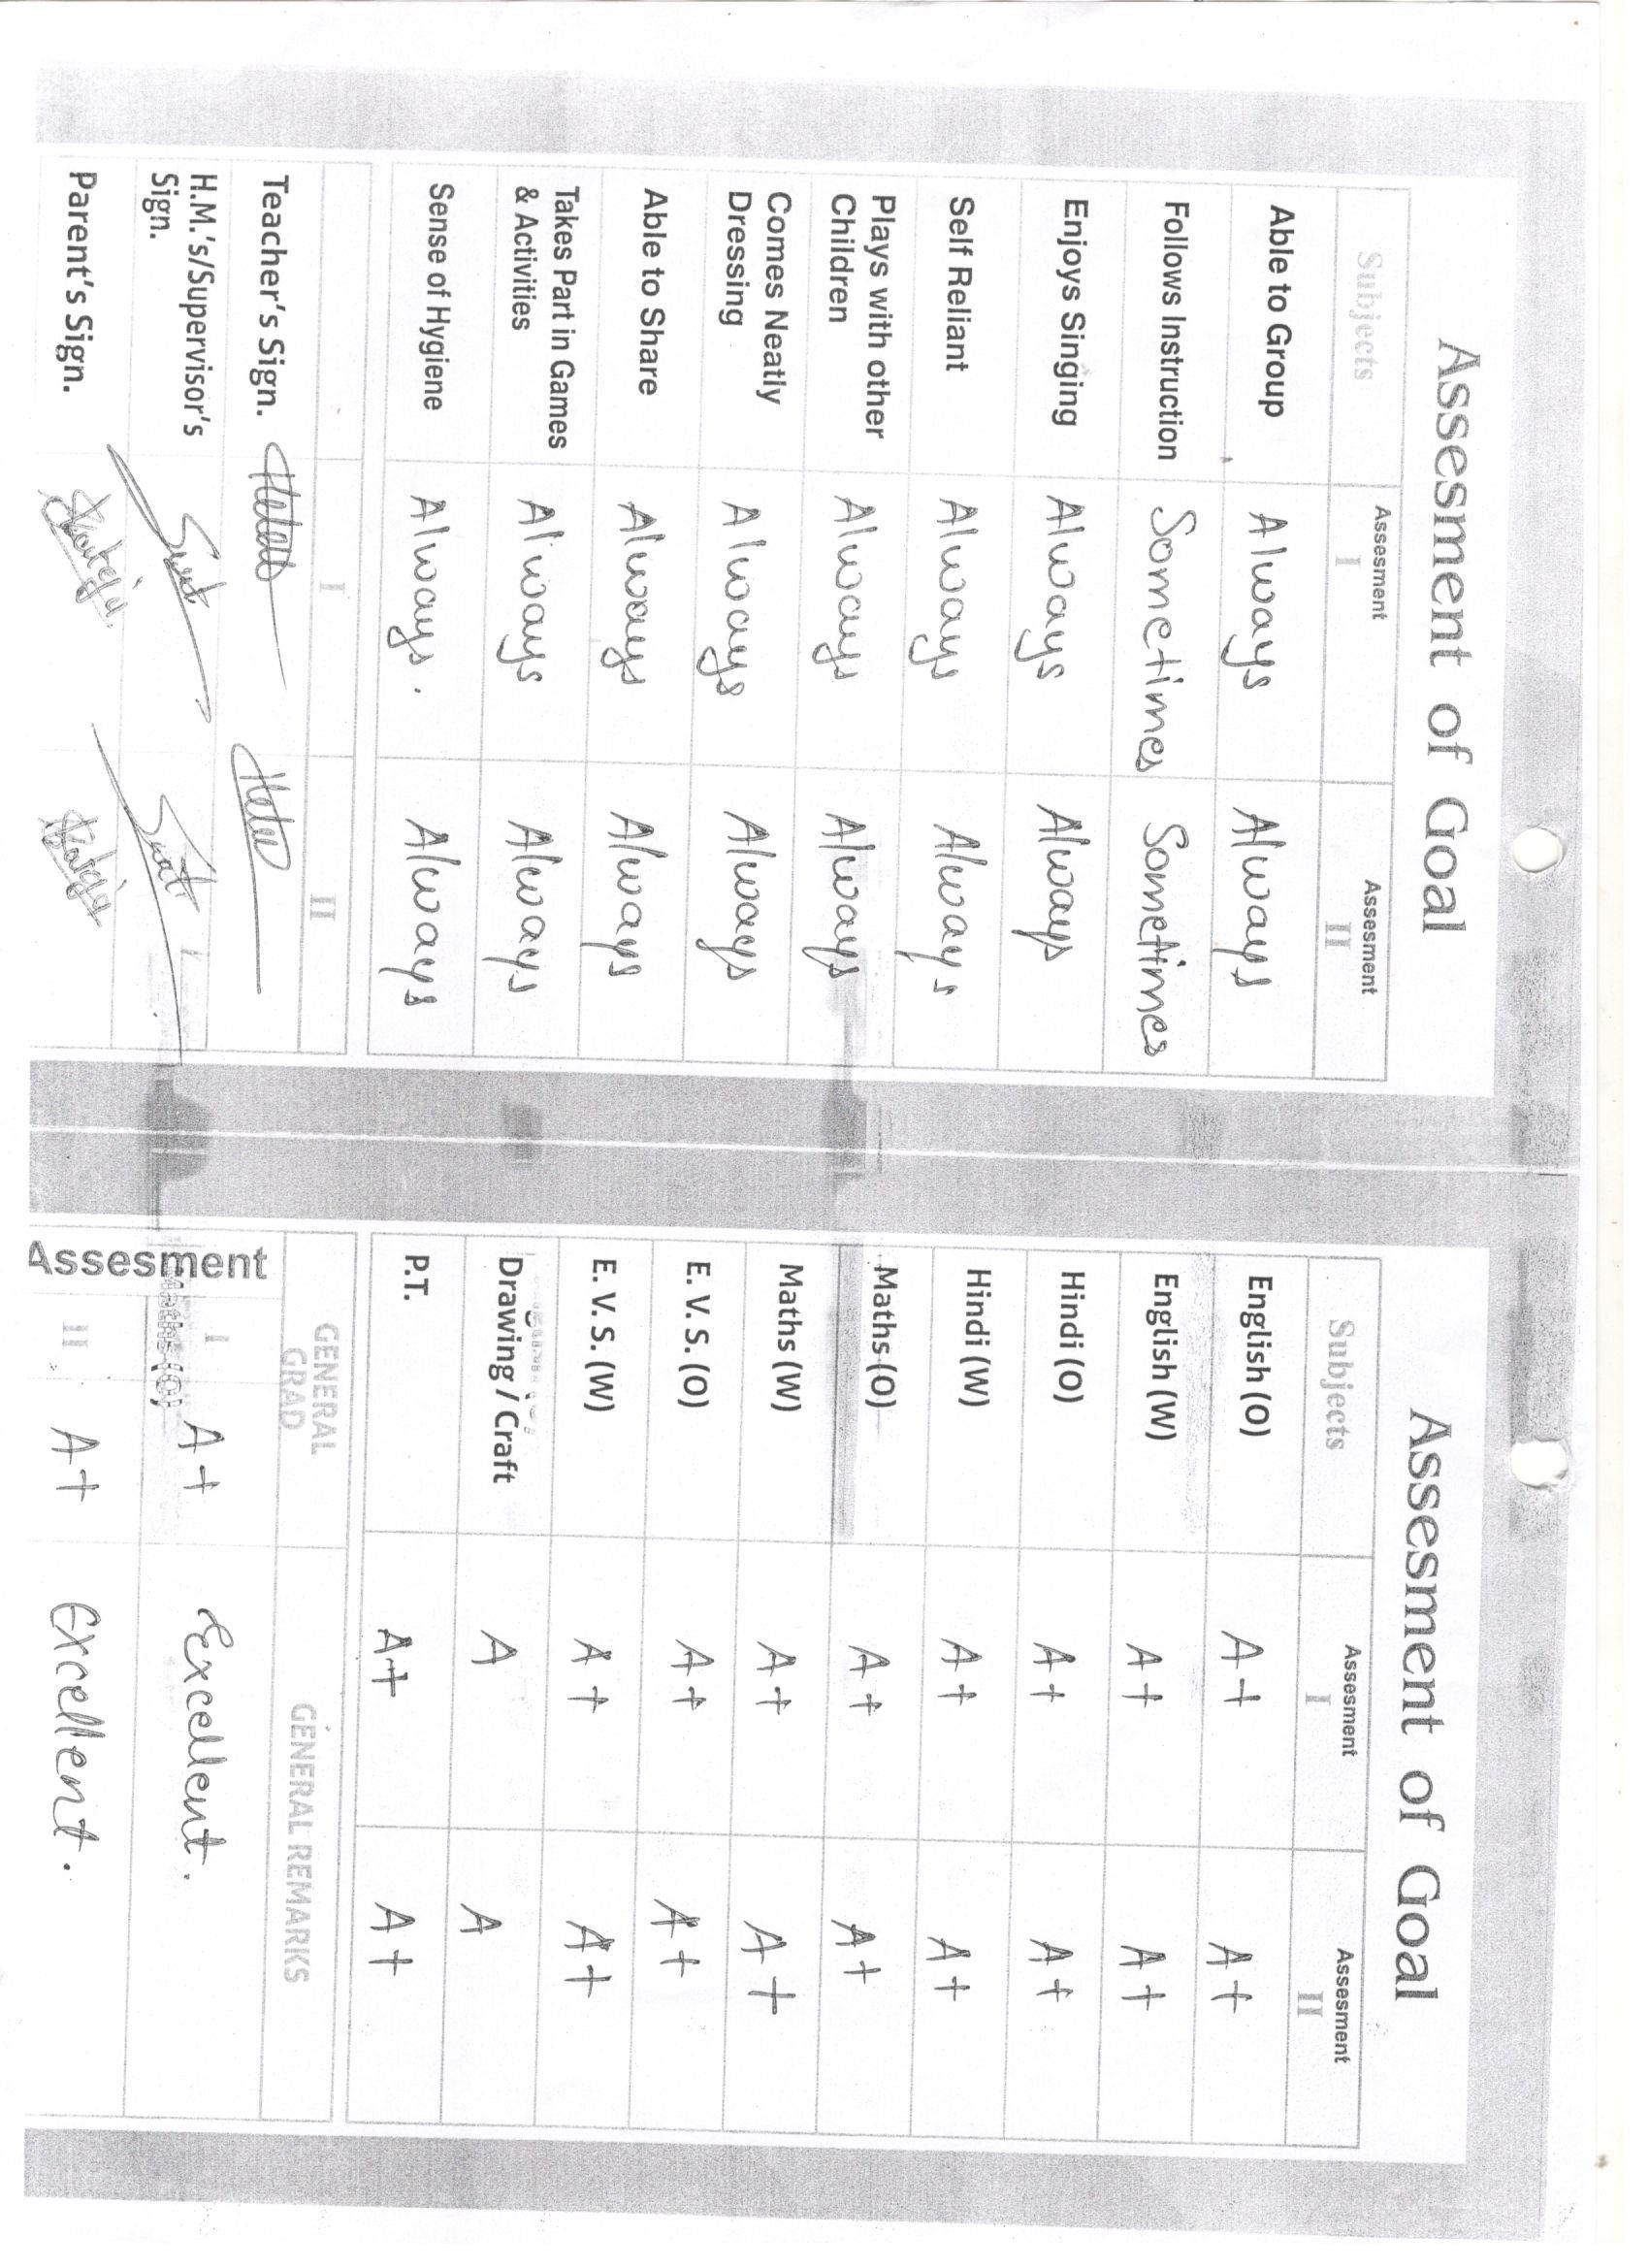 Assesment of Goal
Subjects Assesment I Assesment II
Able to Group Always Always
Follows Instruction Sometimes Sometimes
Enjoys Singing Always Always
Self Reliant Always Always
Plays with other Children Always Always
Comes Neatly Dressing Always Always
Able to Share Always Always
Takes Part in Games & Activities Always Always
Sense of Hygiene Always. Always
I II
Teacher's Sign.
H.M.'s/Supervisor's Sign.
Parent's Sign.
Assesment of Goal
Subjects Assesment I Assesment II
English (O) A+ A+
English (W) A+ A+
Hindi (O) A+ A+
Hindi (W) A+ A+
Maths (O) A+ A+
Maths (W) A+ A+
E. V. S. (O) A+ A+
E. V. S. (W) A+ A+
Drawing / Craft A A
P.T. A+ A+
GENERAL GRAD GENERAL REMARKS
Assesment
I A+ Excellent.
Maths (O)
II A+ Excellent.